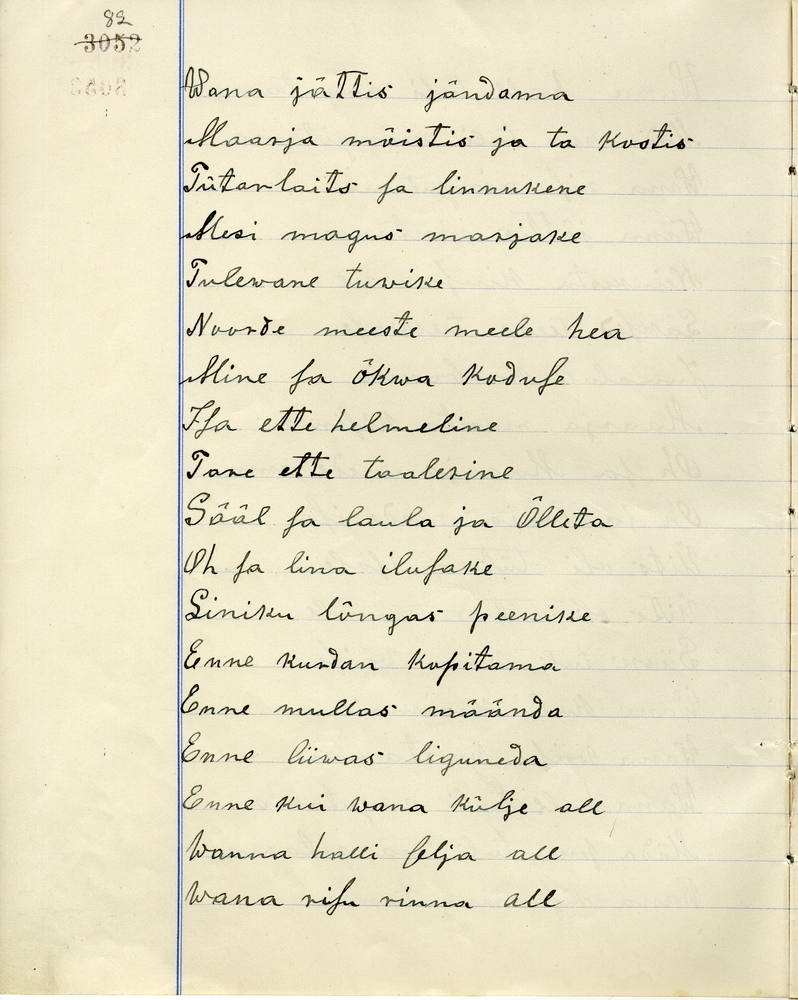 82
3052
Wana jättis jändama
Maarja mõistis ja ta kostis
Tütarlaits sa linnukene
Mesi magus marjake
Tulewane tuwike
Noorde meeste meele hea
Mine sa õkwa koduse
Isa ette helmeline
Tare ette taalerine
Sääl sa laula ja Õlleta
Oh sa lina ilusake
Siniku lõngas peenike
Enne kurdan kopitama
Enne mullas mäända
Enne liiwas liguneda
Enne kui wana külje all
Wanna halli selja all
Wana risu rinna all